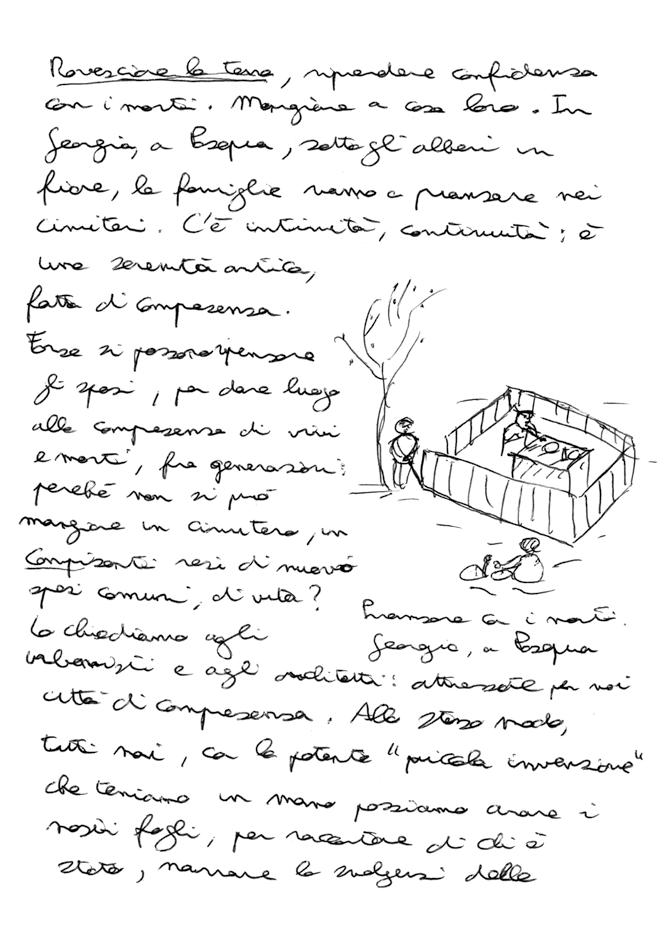 Rovesciare la terra, riprendere confidenza
con i morti. Mangiare a casa loro. In
Georgia, a Pasqua, sotto gli alberi in
fiore, le famiglie vanno a pranzare nei
cimiteri. C'è intimità, continuità; è
una serenità antica,
fatta di compresenza.
Forse si possono ripensare
gli spazi, per dare luogo
alla compresenza di vivi
e morti, fra generazioni:
perché non si può
mangiare in cimitero, in
Campisanti resi di nuovo
spazi comuni, di vita?
Lo chiediamo agli
urbanisti e agli architetti: attrezzate per noi
città di compresenza. Allo stesso modo,
tutti noi, con la potente "piccola invenzione"
che teniamo in mano possiamo arare i
nostri fogli, per raccontare di chi è
stato, narrare lo svolgersi delle
Pranzare con i morti.
Georgia, a Pasqua